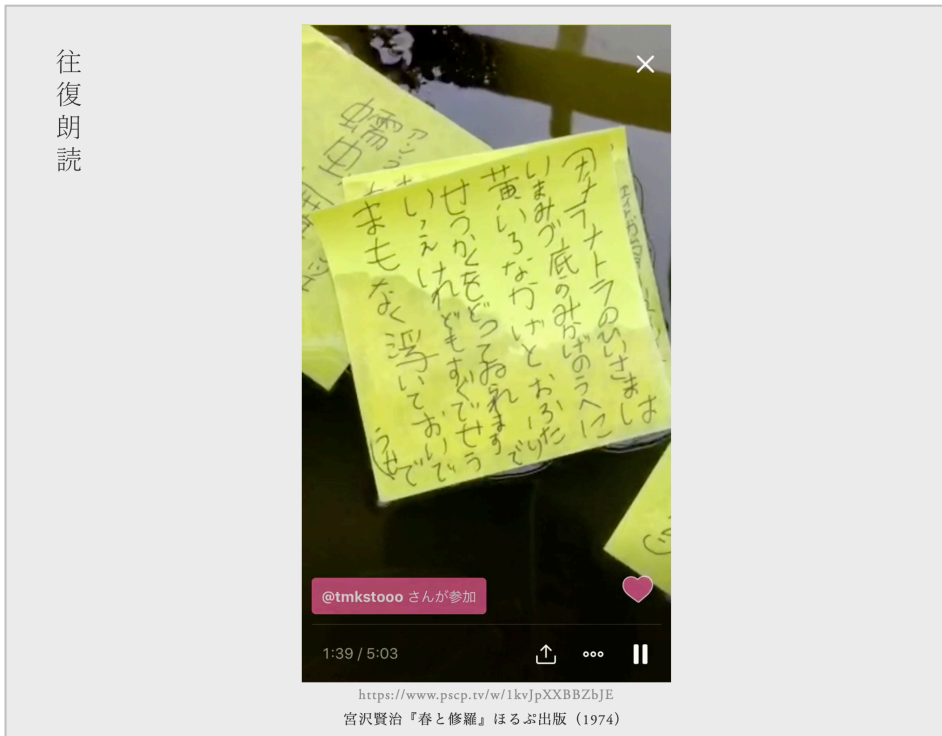 往復朗読
蠕虫
(ナチラナトラのひいさまは
いまみづ底のみかげのうへに
黄いろなかげとおふたりで
せつかくをどつてゐられます
いゝえけれどもすぐでせう
まもなく浮いておいででせう)
@tmkstooo さんが参加
1:39 / 5:03
https://www.pscp.tv/w/1kvJpXXBBZbJE
宮沢賢治『春と修羅』ほるぷ出版(1974)